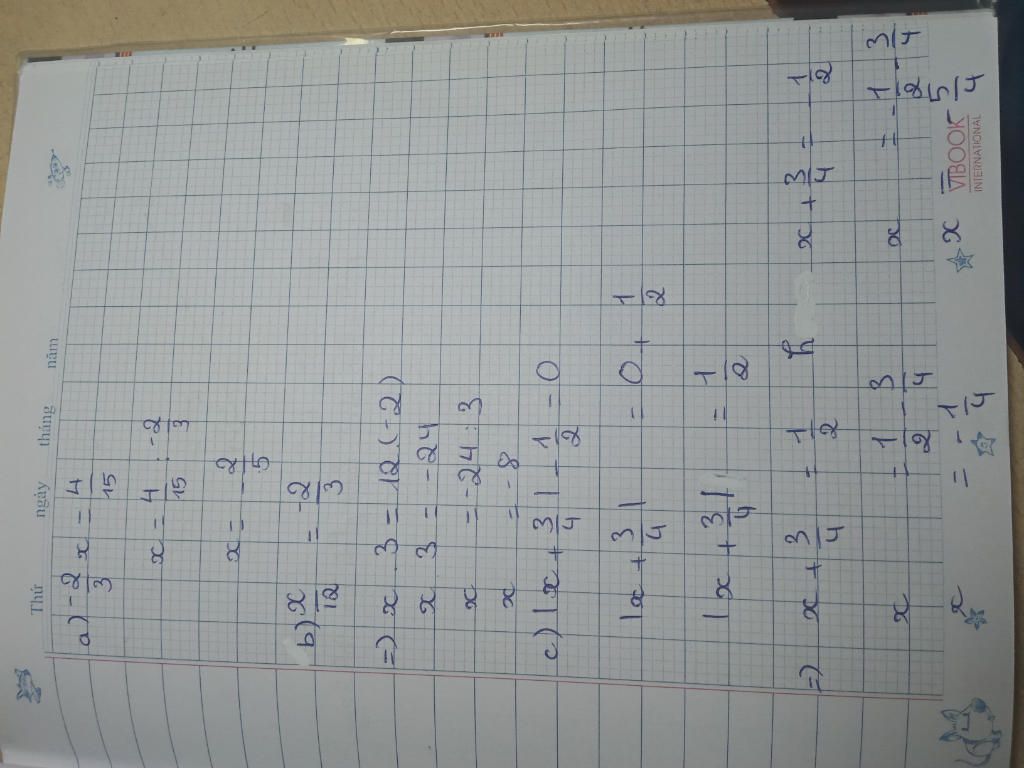 Thứ ngày tháng năm
a) -2/3 x = 4/15
x = 4/15 : -2/3
x = -2/5
b) x/12 = -2/3
=) x . 3 = 12.(-2)
x 3 = -24
x = -24 : 3
x = -8
c) |x + 3/4| - 1/2 = 0
|x + 3/4| = 0 + 1/2
|x + 3/4| = 1/2
=) x + 3/4 = 1/2 h x + 3/4 = -1/2
x = 1/2 - 3/4 x = -1/2 - 3/4
x = -1/4 x 5/4
VIBOOK
INTERNATIONAL